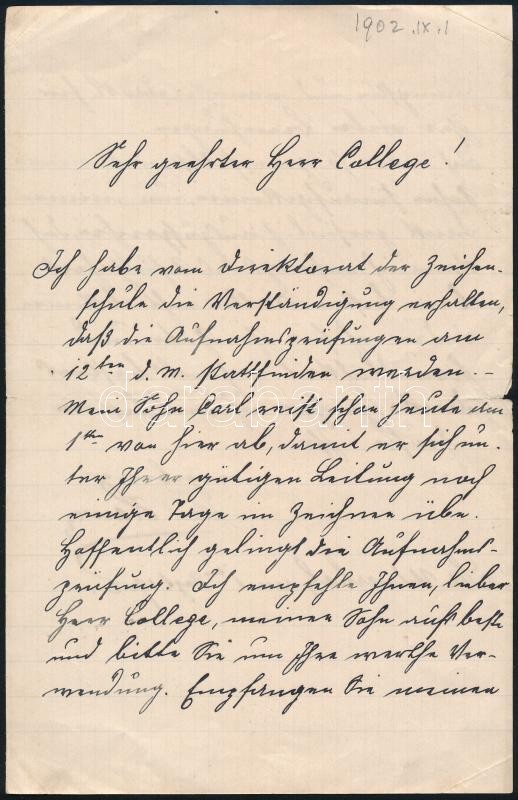 1902 .IX. 1
Sehr geehrter Herr College!
Ich habe vom Direktorat der Zeichen-
schule die Verständigung erhalten,
daß die Aufnahmsprüfungen am
12ten d. M. stattfinden werden. –
Mein Sohn Carl reist schon heute am
1ten von hier ab, damit er sich un-
ter Ihrer gütigen Leitung noch
einige Tage im Zeichnen übe.
Hoffentlich gelingt die Aufnahms-
prüfung. Ich empfehle Ihnen, lieber
Herr College, meinen Sohn aufs beste
und bitte Sie um Ihre werthe Ver-
wendung. Empfangen Sie meinen
darabanth